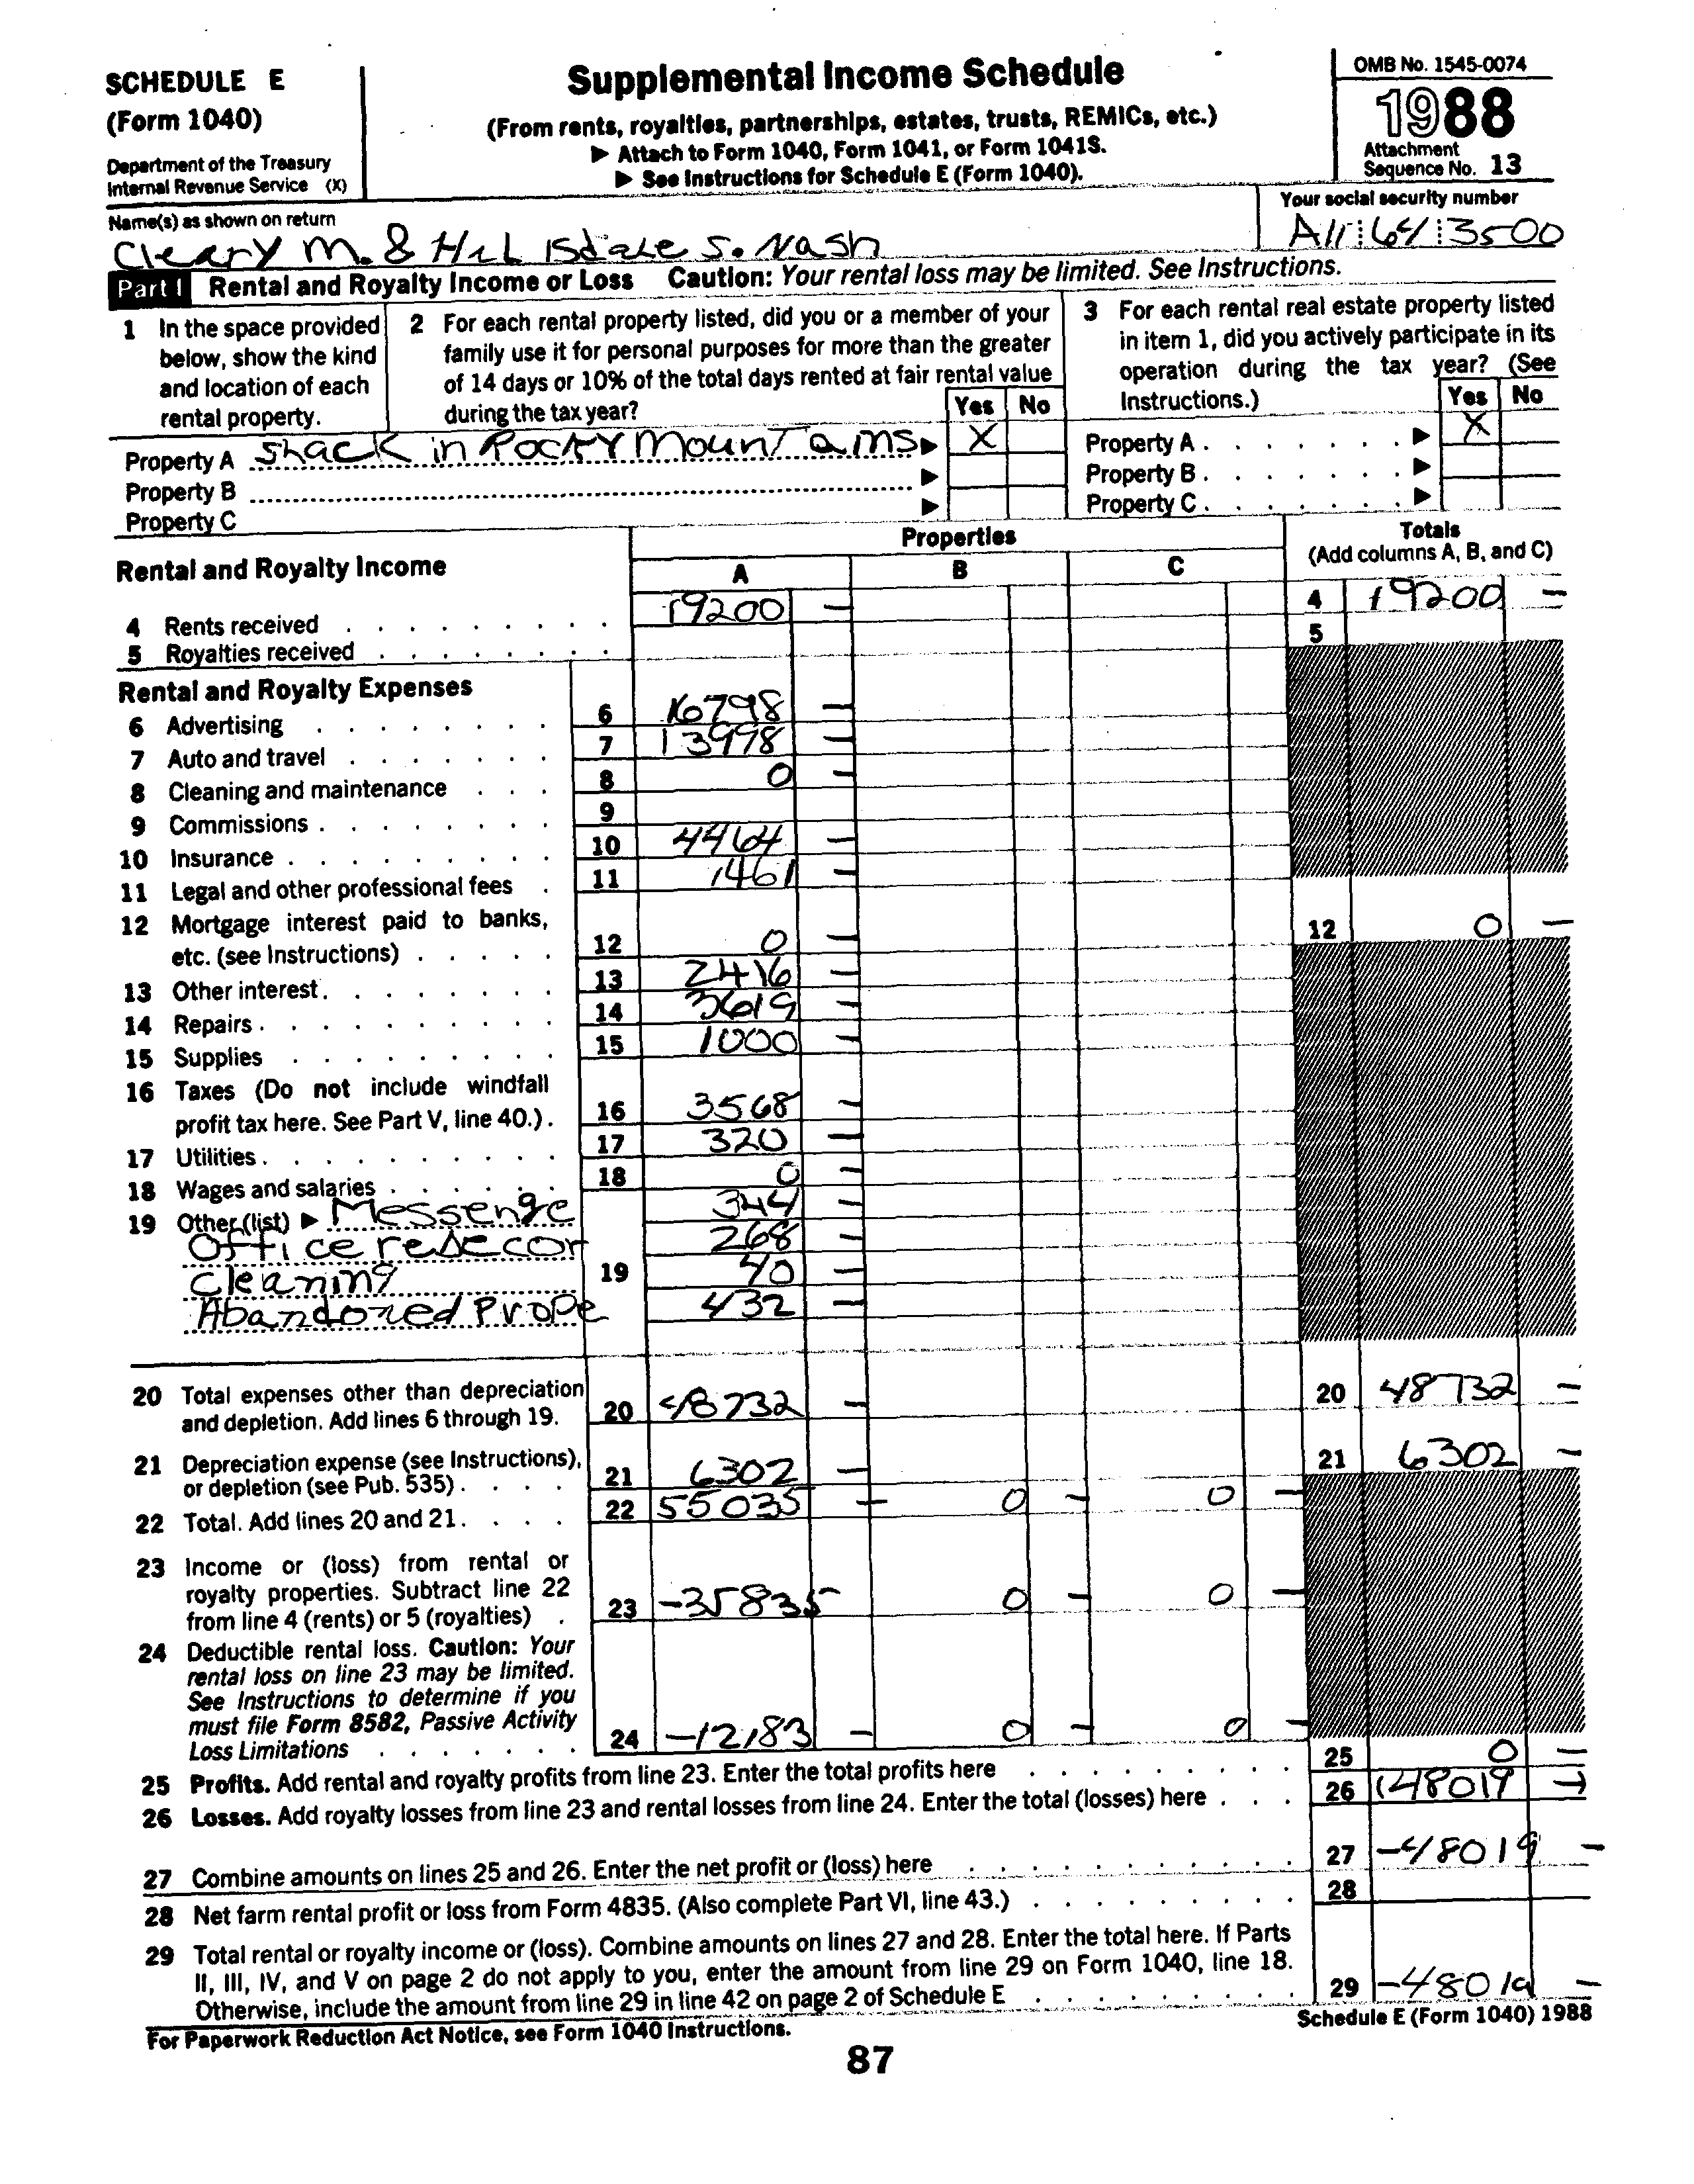 SCHEDULE E
(Form 1040)
Department of the Treasury
Internal Revenue Service (X)
Supplemental Income Schedule
(From rents, royalties, partnerships, estates, trusts, REMICs, etc.)
▶ Attach to Form 1040, Form 1041, or Form 1041S.
▶ See Instructions for Schedule E (Form 1040).
OMB No. 1545-0074
1988
Attachment
Sequence No. 13
Name(s) as shown on return
Cleary M. & S. Nash
Your social security number
64 3500
Part I Rental and Royalty Income or Loss Caution: Your rental loss may be limited. See Instructions.
1 In the space provided
below, show the kind
and location of each
rental property.
2 For each rental property listed, did you or a member of your
family use it for personal purposes for more than the greater
of 14 days or 10% of the total days rented at fair rental value
during the tax year? Yes No
3 For each rental real estate property listed
in item 1, did you actively participate in its
operation during the tax year? (See
Instructions.) Yes No
Property A Shack in Rocky Mountains ▶ X
Property B ▶
Property C ▶
Property A ▶ X
Property B ▶
Property C ▶
Properties
Totals
(Add columns A, B, and C)
Rental and Royalty Income
A B C
4 Rents received 19200 – 4 19200 –
5 Royalties received 5
Rental and Royalty Expenses
6 Advertising 6 16798 –
7 Auto and travel 7 13998 –
8 Cleaning and maintenance 8 0 –
9 Commissions 9
10 Insurance 10 4464 –
11 Legal and other professional fees 11 1461 –
12 Mortgage interest paid to banks,
etc. (see Instructions) 12 0 – 12 0 –
13 Other interest 13 2416 –
14 Repairs 14 3619 –
15 Supplies 15 1000 –
16 Taxes (Do not include windfall
profit tax here. See Part V, line 40.) 16 3568 –
17 Utilities 17 320 –
18 Wages and salaries 18 0 –
19 Other (list) ▶ Messenge 344 –
Office redecor 268 –
Cleaning 19 40 –
Abandoned Prope 432 –
20 Total expenses other than depreciation
and depletion. Add lines 6 through 19. 20 48732 – 20 48732 –
21 Depreciation expense (see Instructions),
or depletion (see Pub. 535) 21 6302 – 21 6302 –
22 Total. Add lines 20 and 21 22 55035 – 0 – 0 –
23 Income or (loss) from rental or
royalty properties. Subtract line 22
from line 4 (rents) or 5 (royalties) 23 -35835 – 0 – 0 –
24 Deductible rental loss. Caution: Your
rental loss on line 23 may be limited.
See Instructions to determine if you
must file Form 8582, Passive Activity
Loss Limitations 24 -12183 – 0 – 0 –
25 Profits. Add rental and royalty profits from line 23. Enter the total profits here 25 0 –
26 Losses. Add royalty losses from line 23 and rental losses from line 24. Enter the total (losses) here 26 (48019 –)
27 Combine amounts on lines 25 and 26. Enter the net profit or (loss) here 27 -48019 –
28 Net farm rental profit or loss from Form 4835. (Also complete Part VI, line 43.) 28
29 Total rental or royalty income or (loss). Combine amounts on lines 27 and 28. Enter the total here. If Parts
II, III, IV, and V on page 2 do not apply to you, enter the amount from line 29 on Form 1040, line 18.
Otherwise, include the amount from line 29 in line 42 on page 2 of Schedule E 29 -48019 –
For Paperwork Reduction Act Notice, see Form 1040 Instructions.
Schedule E (Form 1040) 1988
87